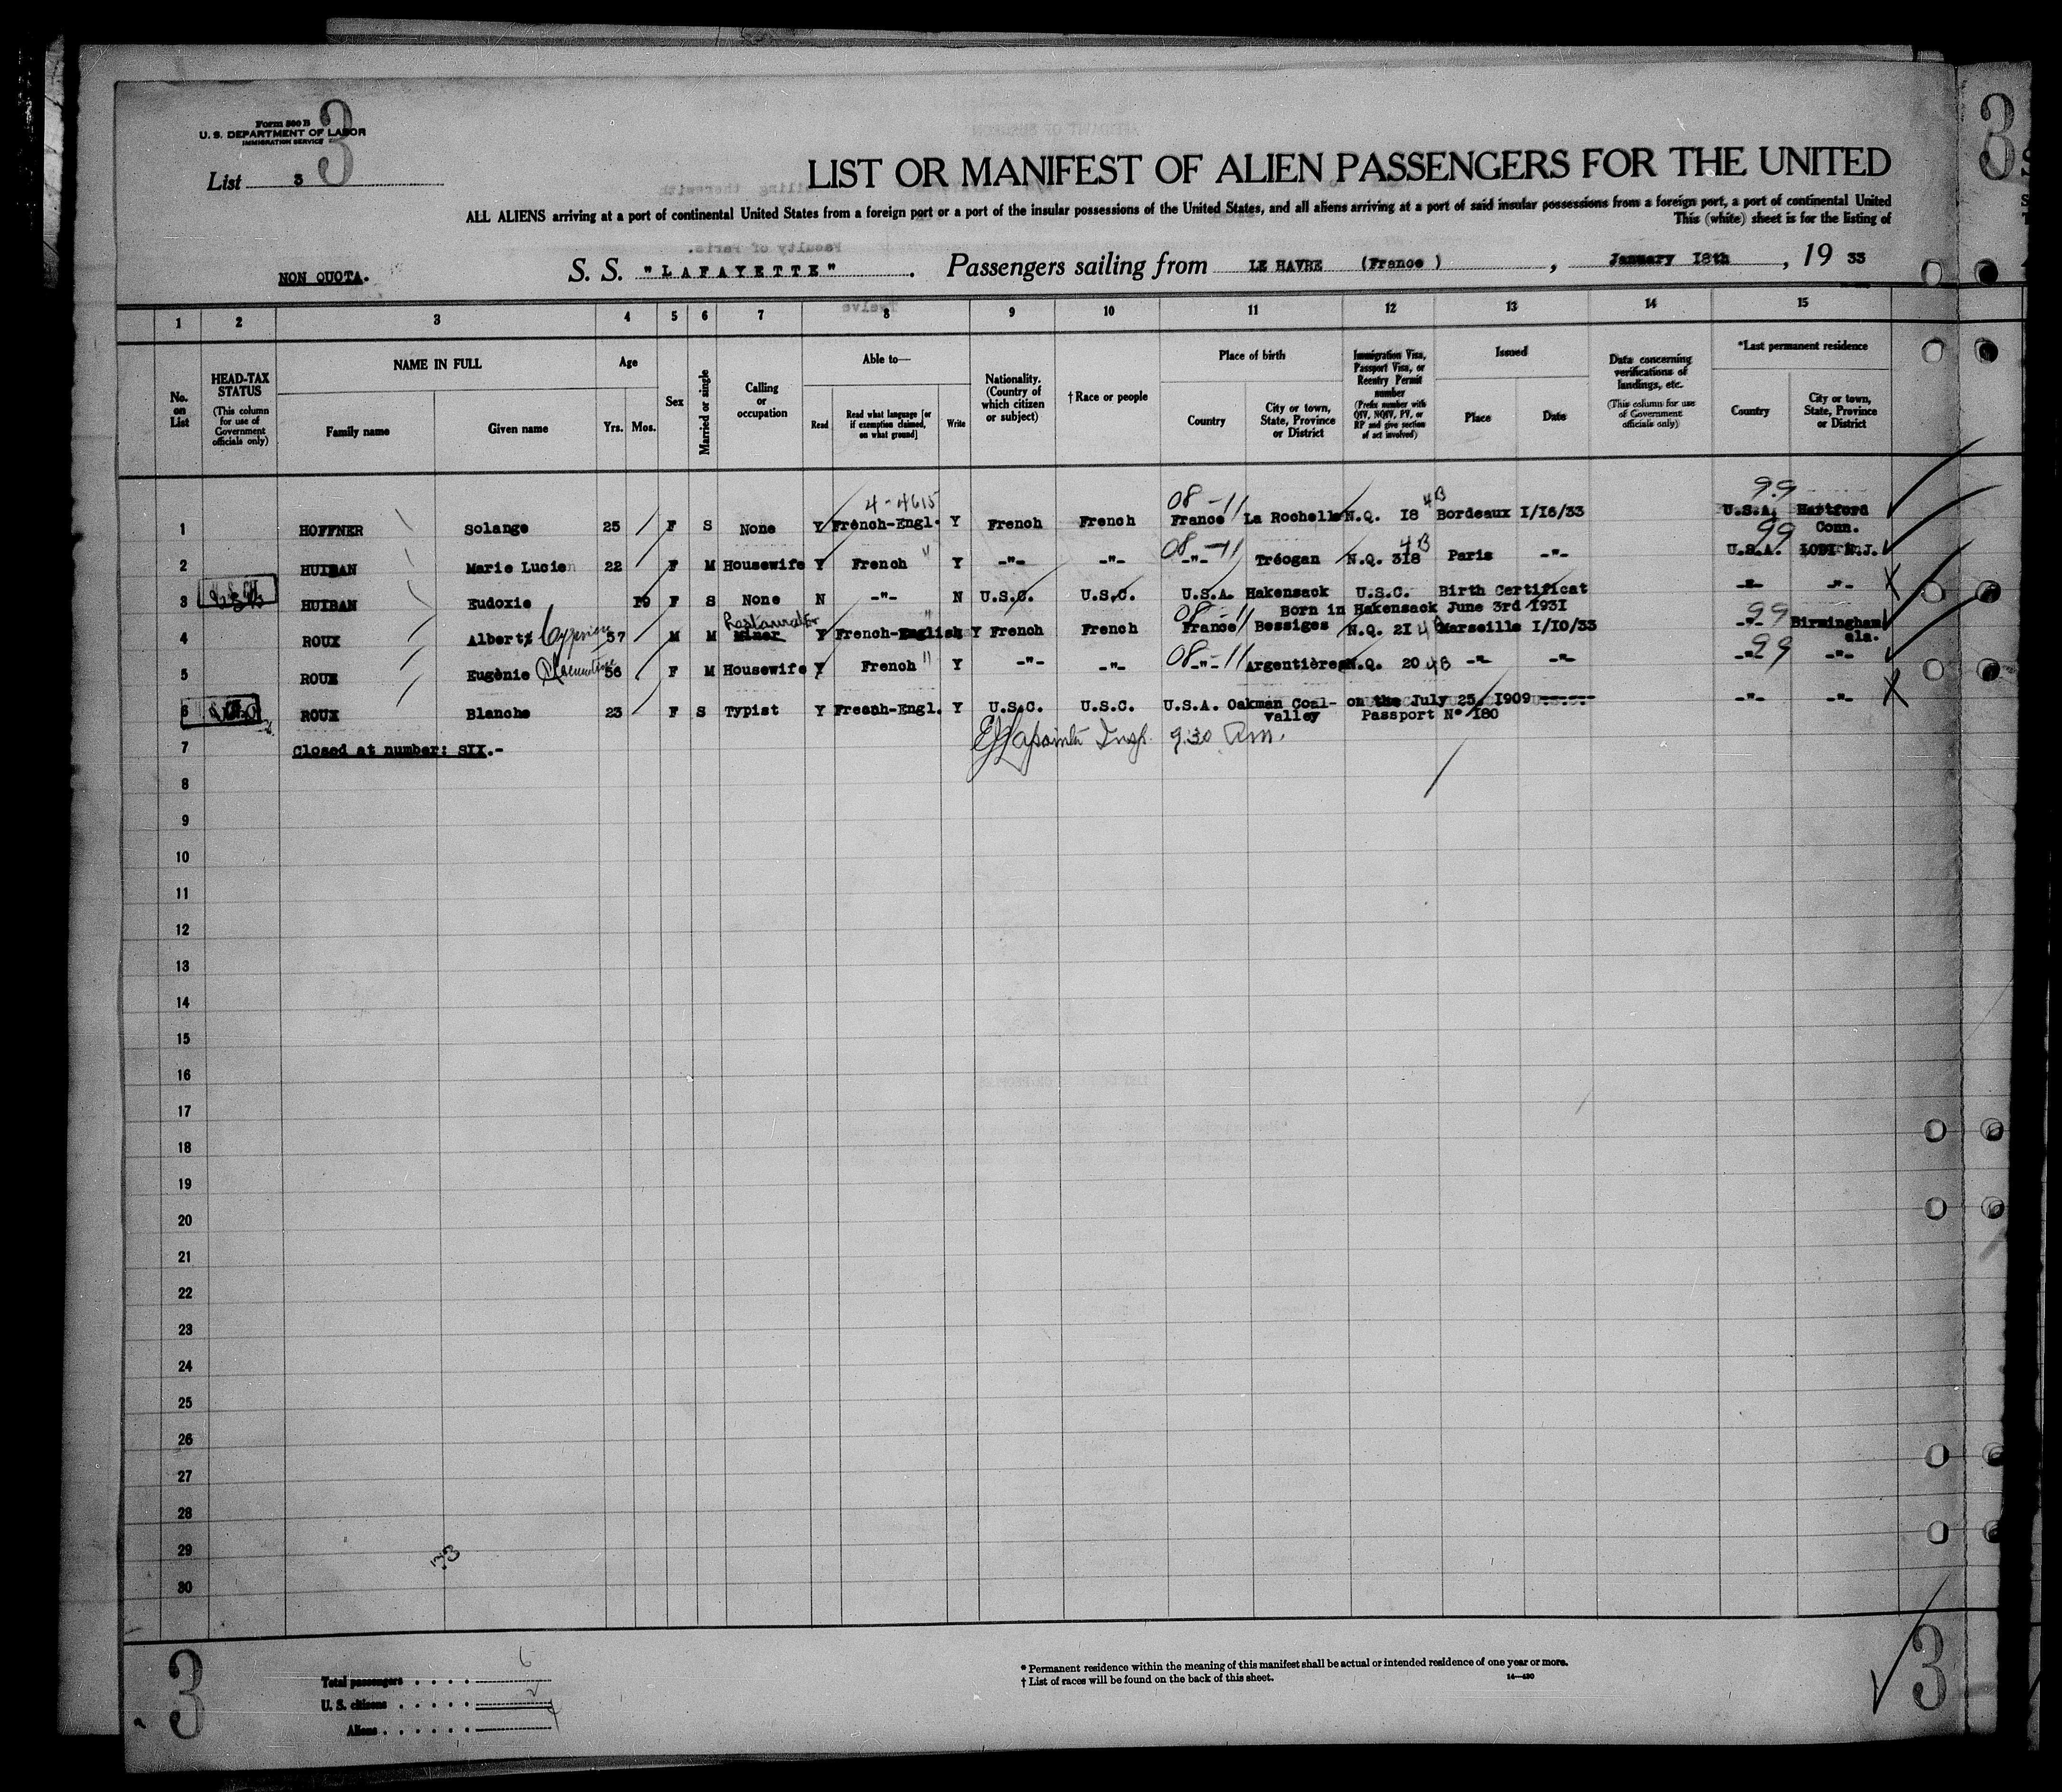 Form 500 B
U. S. DEPARTMENT OF LABOR
IMMIGRATION SERVICE
3
3
List 3
LIST OR MANIFEST OF ALIEN PASSENGERS FOR THE UNITED
ALL ALIENS arriving at a port of continental United States from a foreign port or a port of the insular possessions of the United States, and all aliens arriving at a port of said insular possessions from a foreign port, a port of continental United
This (white) sheet is for the listing of
NON QUOTA.
S. S. "LAFAYETTE" . Passengers sailing from LE HAVRE (France ) , January 18th , 19 33
1 2 3 4 5 6 7 8 9 10 11 12 13 14 15
No. on List
HEAD-TAX STATUS (This column for use of Government officials only)
NAME IN FULL
Family name
Given name
Age
Yrs.
Mos.
Sex
Married or single
Calling or occupation
Able to—
Read
Read what language [or if exemption claimed, on what ground]
Write
Nationality. (Country of which citizen or subject)
† Race or people
Place of birth
Country
City or town, State, Province or District
Immigration Visa, Passport Visa, or Reentry Permit number (Prefix number with QIV, NQIV, PV, or RP and give section of act involved)
Issued
Place
Date
Data concerning verifications of landings, etc. (This column for use of Government officials only)
*Last permanent residence
Country
City or town, State, Province or District
4-4615 08-11 4B 99
1 HOFFNER Solange 25 F S None Y French-Engl. Y French French France La Rochelle N.Q. I8 Bordeaux I/I6/33 U.S.A. Hartford Conn.
08-11 4B 99
2 HUIBAN Marie Lucie 22 F M Housewife Y French " Y -"- -"- -"- Tréogan N.Q. 3I8 Paris -"- U.S.A. LODI N.J.
3 HUIBAN Eudoxie I9 F S None N -"- N U.S.C. U.S.C. U.S.A. Hakensack U.S.C. Birth Certificat -"- -"- X
Born in Hakensack June 3rd I93I
Restaurater 08-11 99
4 ROUX Albert Cyprien 57 M M Miner Y French-English Y French French France Bessèges N.Q. 2I 4B Marseille I/I0/33 -"- Birmingham ala.
08-11 99
5 ROUX Eugènie Clementine 56 F M Housewife Y French " Y -"- -"- -"- Argentières N.Q. 20 4B -"- -"- -"- -"-
6 ROUX Blanche 23 F S Typist Y French-Engl. Y U.S.C. U.S.C. U.S.A. Oakman Coal- on the July 25, I909 -"- -"- X
valley Passport N° I80
7 Closed at number: SIX.- Lapointe Insp. 9:30 Am.
8
9
10
11
12
13
14
15
16
17
18
19
20
21
22
23
24
25
26
27
28
29
30
3
Total passengers . . . . 6
U. S. citizens . . . . . 2
Aliens . . . . . . 4
* Permanent residence within the meaning of this manifest shall be actual or intended residence of one year or more.
† List of races will be found on the back of this sheet.
14—430
3